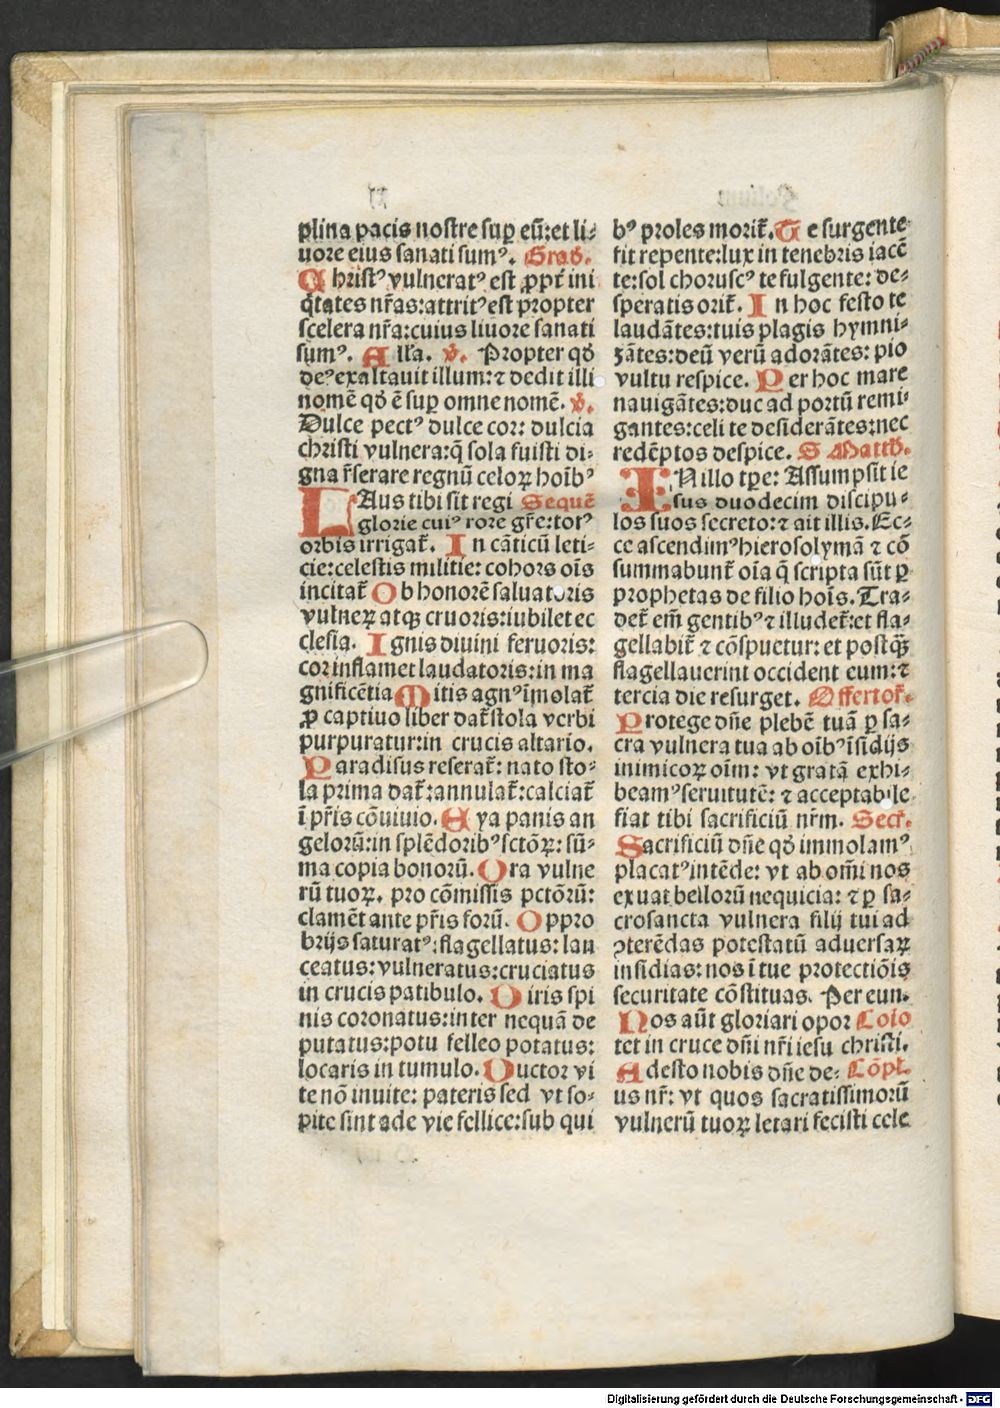 plina pacis nostre suꝑ eũ: et li⸗
uore eius sanati sumꝰ. Grad̛.
Christꝰ vulneratꝰ est ꝓpt̃ ini
q̃tates nr̃as: attritꝰ est propter
scelera nr̃a: cuius liuore sanati
sumꝰ. All'a. v̛. Propter qd̛
deꝰ exaltauit illum: ⁊ dedit illi
nomẽ qd̛ ẽ suꝑ omne nomẽ. v̛.
Dulce pectꝰ dulce cor: dulcia
christi vulnera: q̃ sola fuisti di⸗
gna r̃serare regnũ celoꝝ hoĩbꝰ
LAus tibi sit regi Sequẽ
glorie cuiꝰ rore gr̃e: totꝰ
orbis irrigat̃. In cãticũ leti⸗
cie: celestis militie: cohors oĩs
incitat̃ Ob honorẽ saluatoris
vulneꝝ atqꝫ cruoris: iubilet ec
clesia. Ignis diuini feruoris:
cor inflamet laudatoris: in ma
gnificẽtia Mitis agnꝰ ĩmolat̃
ꝓ captiuo liber dat̃ stola verbi
purpuratur: in crucis altario.
Paradisus reserat̃: nato sto⸗
la prima dat̃: annulat̃: calciat̃
ĩ pr̃is cõuiuio. Eya panis an
gelorũ: in splẽdoribꝰ sctõꝝ: sũ⸗
ma copia bonorũ. Ora vulne
rũ tuoꝝ. pro cõmissis pctõrũ:
clamẽt ante pr̃is forũ. Oppro
brijs saturatꝰ: flagellatus: lan
ceatus: vulneratus: cruciatus
in crucis patibulo. O iris spi
nis coronatus: inter nequã de
putatus: potu felleo potatus:
locaris in tumulo. Ductor vi
te nõ inuite: pateris sed vt so⸗
pite sint ade vie fellice: sub qui
bꝰ proles morit̃. Te surgente
fit repente: lux in tenebris iacẽ
te: sol choruscꝰ te fulgente: de⸗
speratis orit̃. In hoc festo te
laudãtes: tuis plagis hymni⸗
zãtes: deũ verũ adorãtes: pio
vultu respice. Per hoc mare
nauigãtes: duc ad portũ remi⸗
gantes: celi te desiderãtes: nec
redẽptos despice. S Matth̛.
IN illo tp̃e: Assumpsit ie
sus duodecim discipu⸗
los suos secreto: ⁊ ait illis. Ec⸗
ce ascendimꝰ hierosolymã ⁊ cõ
summabunt̃ oĩa q̃ scripta sũt ꝑ
prophetas de filio hoĩs. Tra⸗
det̃ em̃ gentibꝰ ⁊ illudet̃: et fla⸗
gellabit̃ ⁊ cõspuetur: et postq̃ꝫ
flagellauerint occident eum: ⁊
tercia die resurget. Offertor̃.
Protege dñe plebẽ tuã ꝑ sa⸗
cra vulnera tua ab oĩbꝰ ĩsidijs
inimicoꝝ oĩm: vt gratã exhi⸗
beamꝰ seruitutẽ: ⁊ acceptabile
fiat tibi sacrificiũ nr̃m. Secr̃.
Sacrificiũ dñe qd̛ immolamꝰ
placatꝰ intẽde: vt ab om̃i nos
exuat bellorũ nequicia: ⁊ ꝑ sa⸗
crosancta vulnera filij tui ad
ꝯterẽdas potestatũ aduersaꝝ
insidias: nos ĩ tue protectiõis
securitate cõstituas. Per eun.
Nos aũt gloriari opor Cõio
tet in cruce dñi nr̃i iesu christi.
Adesto nobis dñe de⸗ Cõpl̃.
us nr̃: vt quos sacratissimorũ
vulnerũ tuoꝝ letari fecisti cele
Digitalisierung gefördert durch die Deutsche Forschungsgemeinschaft - DFG